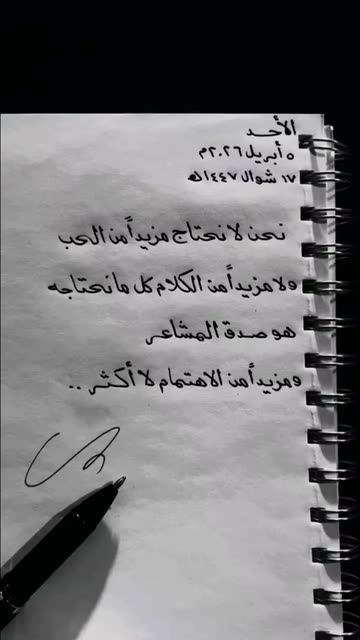 الأحد
٥ أبريل ٢٠٢٦م
١٧ شوال ١٤٤٧هـ
نحن لا نحتاج مزيداً من الحب
ولا مزيداً من الكلام كل ما نحتاجه
هو صدق المشاعر
ومزيداً من الاهتمام لا أكثر ..